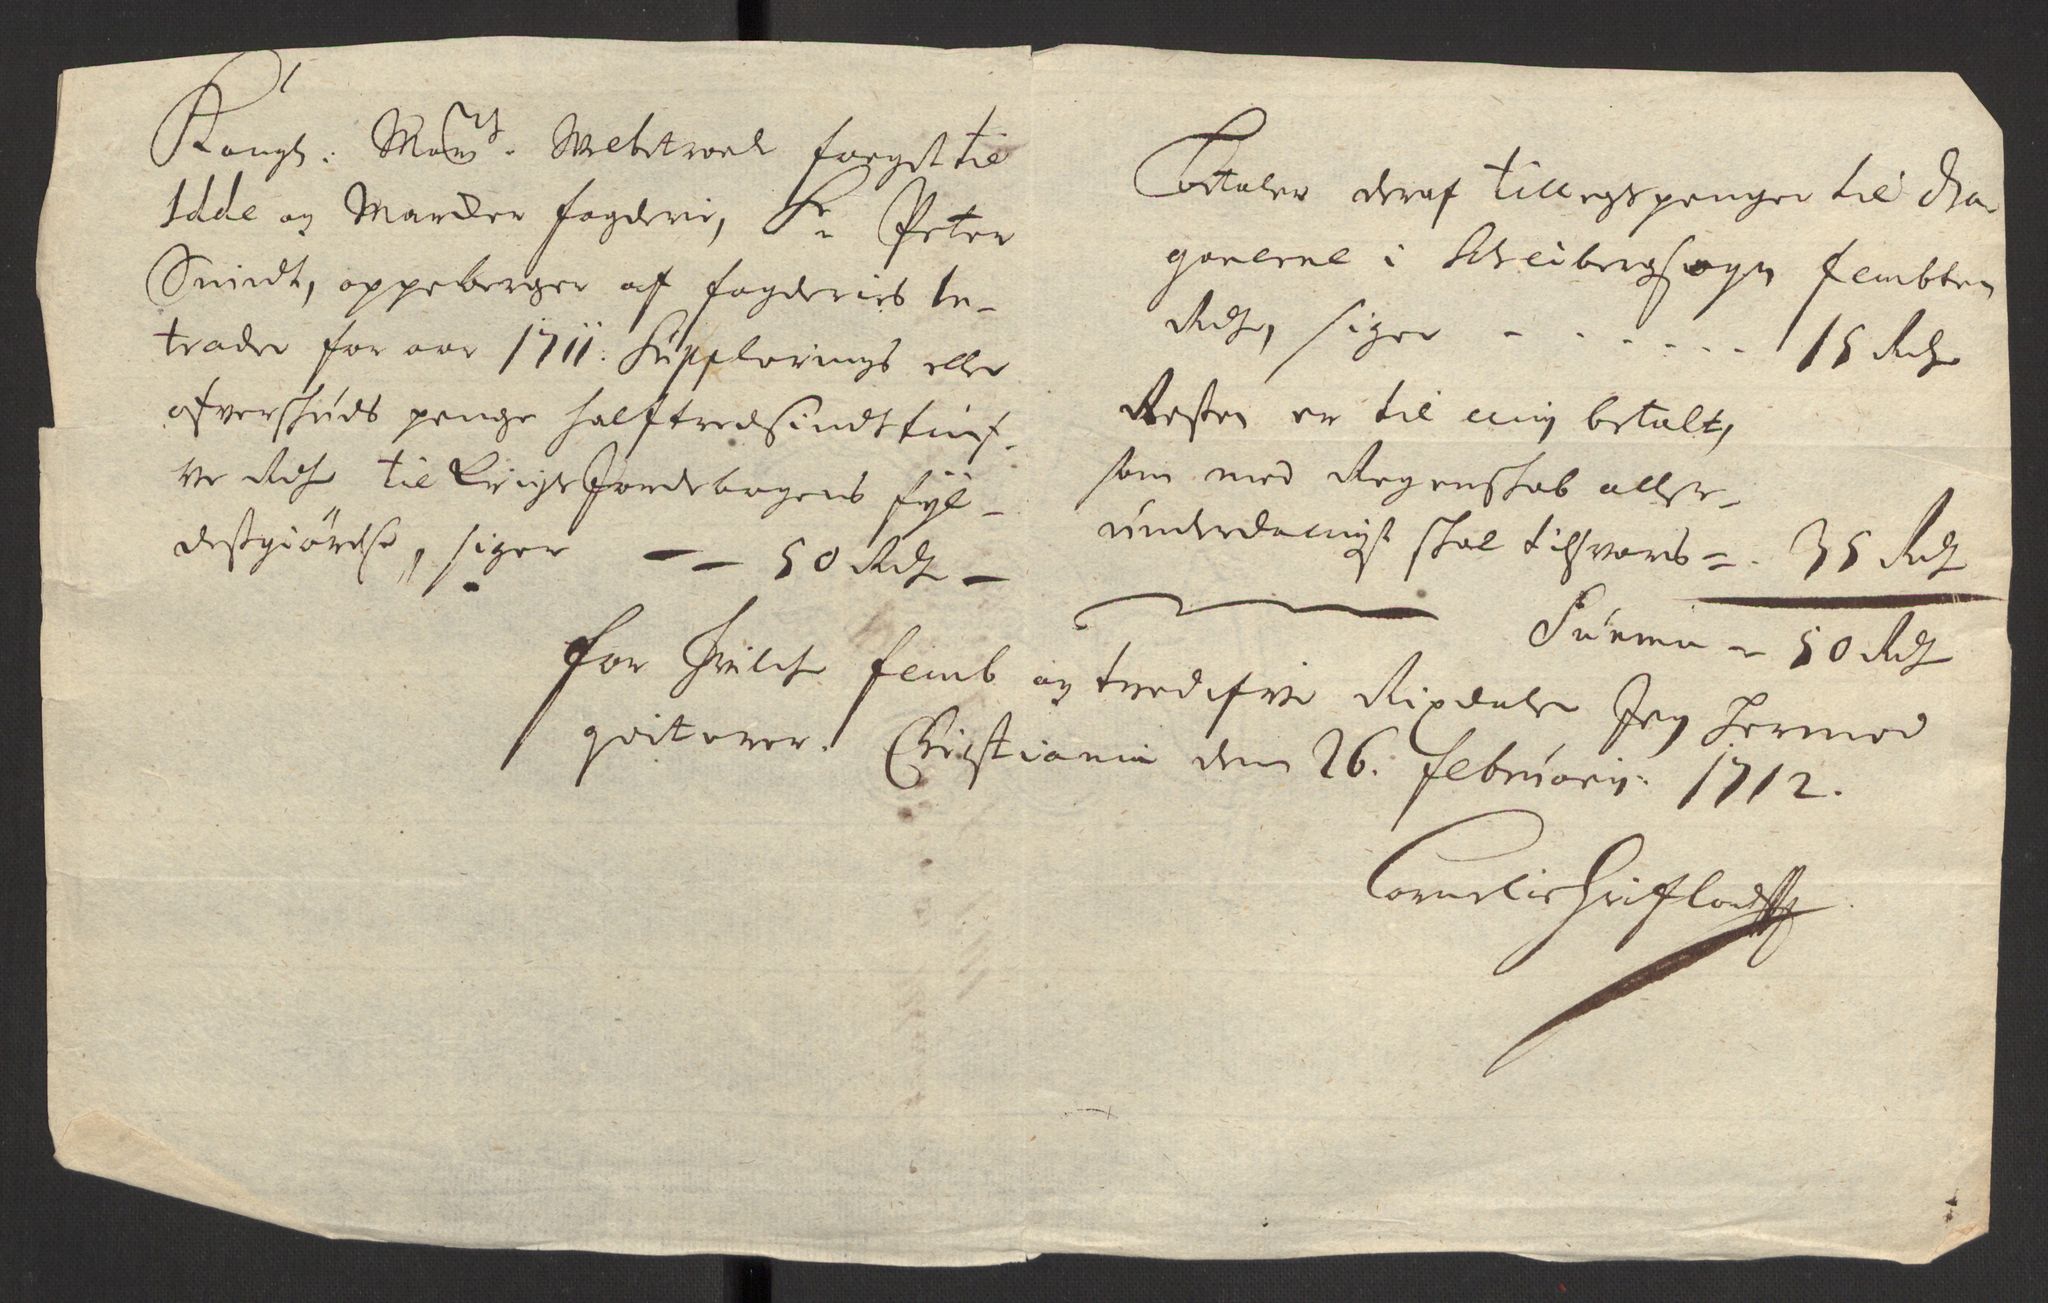 Kongl: Mayts Welbetroed foeget til
Idde og Marcker fogderie, Sr Peter
Smidt, oppeberger af fogderies In-
trader for aar 1711: Supplerings eller
ofverskuds penge halftredsindstiuf-
ve Rdr til Jordebogens fyl-
destgiørelse, siger — — 50 Rdr —
Betaler deraf tillegspenger til dra
gonerne i Schiebergsogn fembten
Rdr, siger - - - - - - - 15 Rdr
Resten er til mig betalt,
som med Regenskab aller-
underdanigst skal tilsvaris = . 35 Rdr
Summa = 50 Rdr
for hvilche femb og tredifve Rixdaler Jeg hermed
qviterer. Christiania den 26. februarij: 1712.
Cornelis